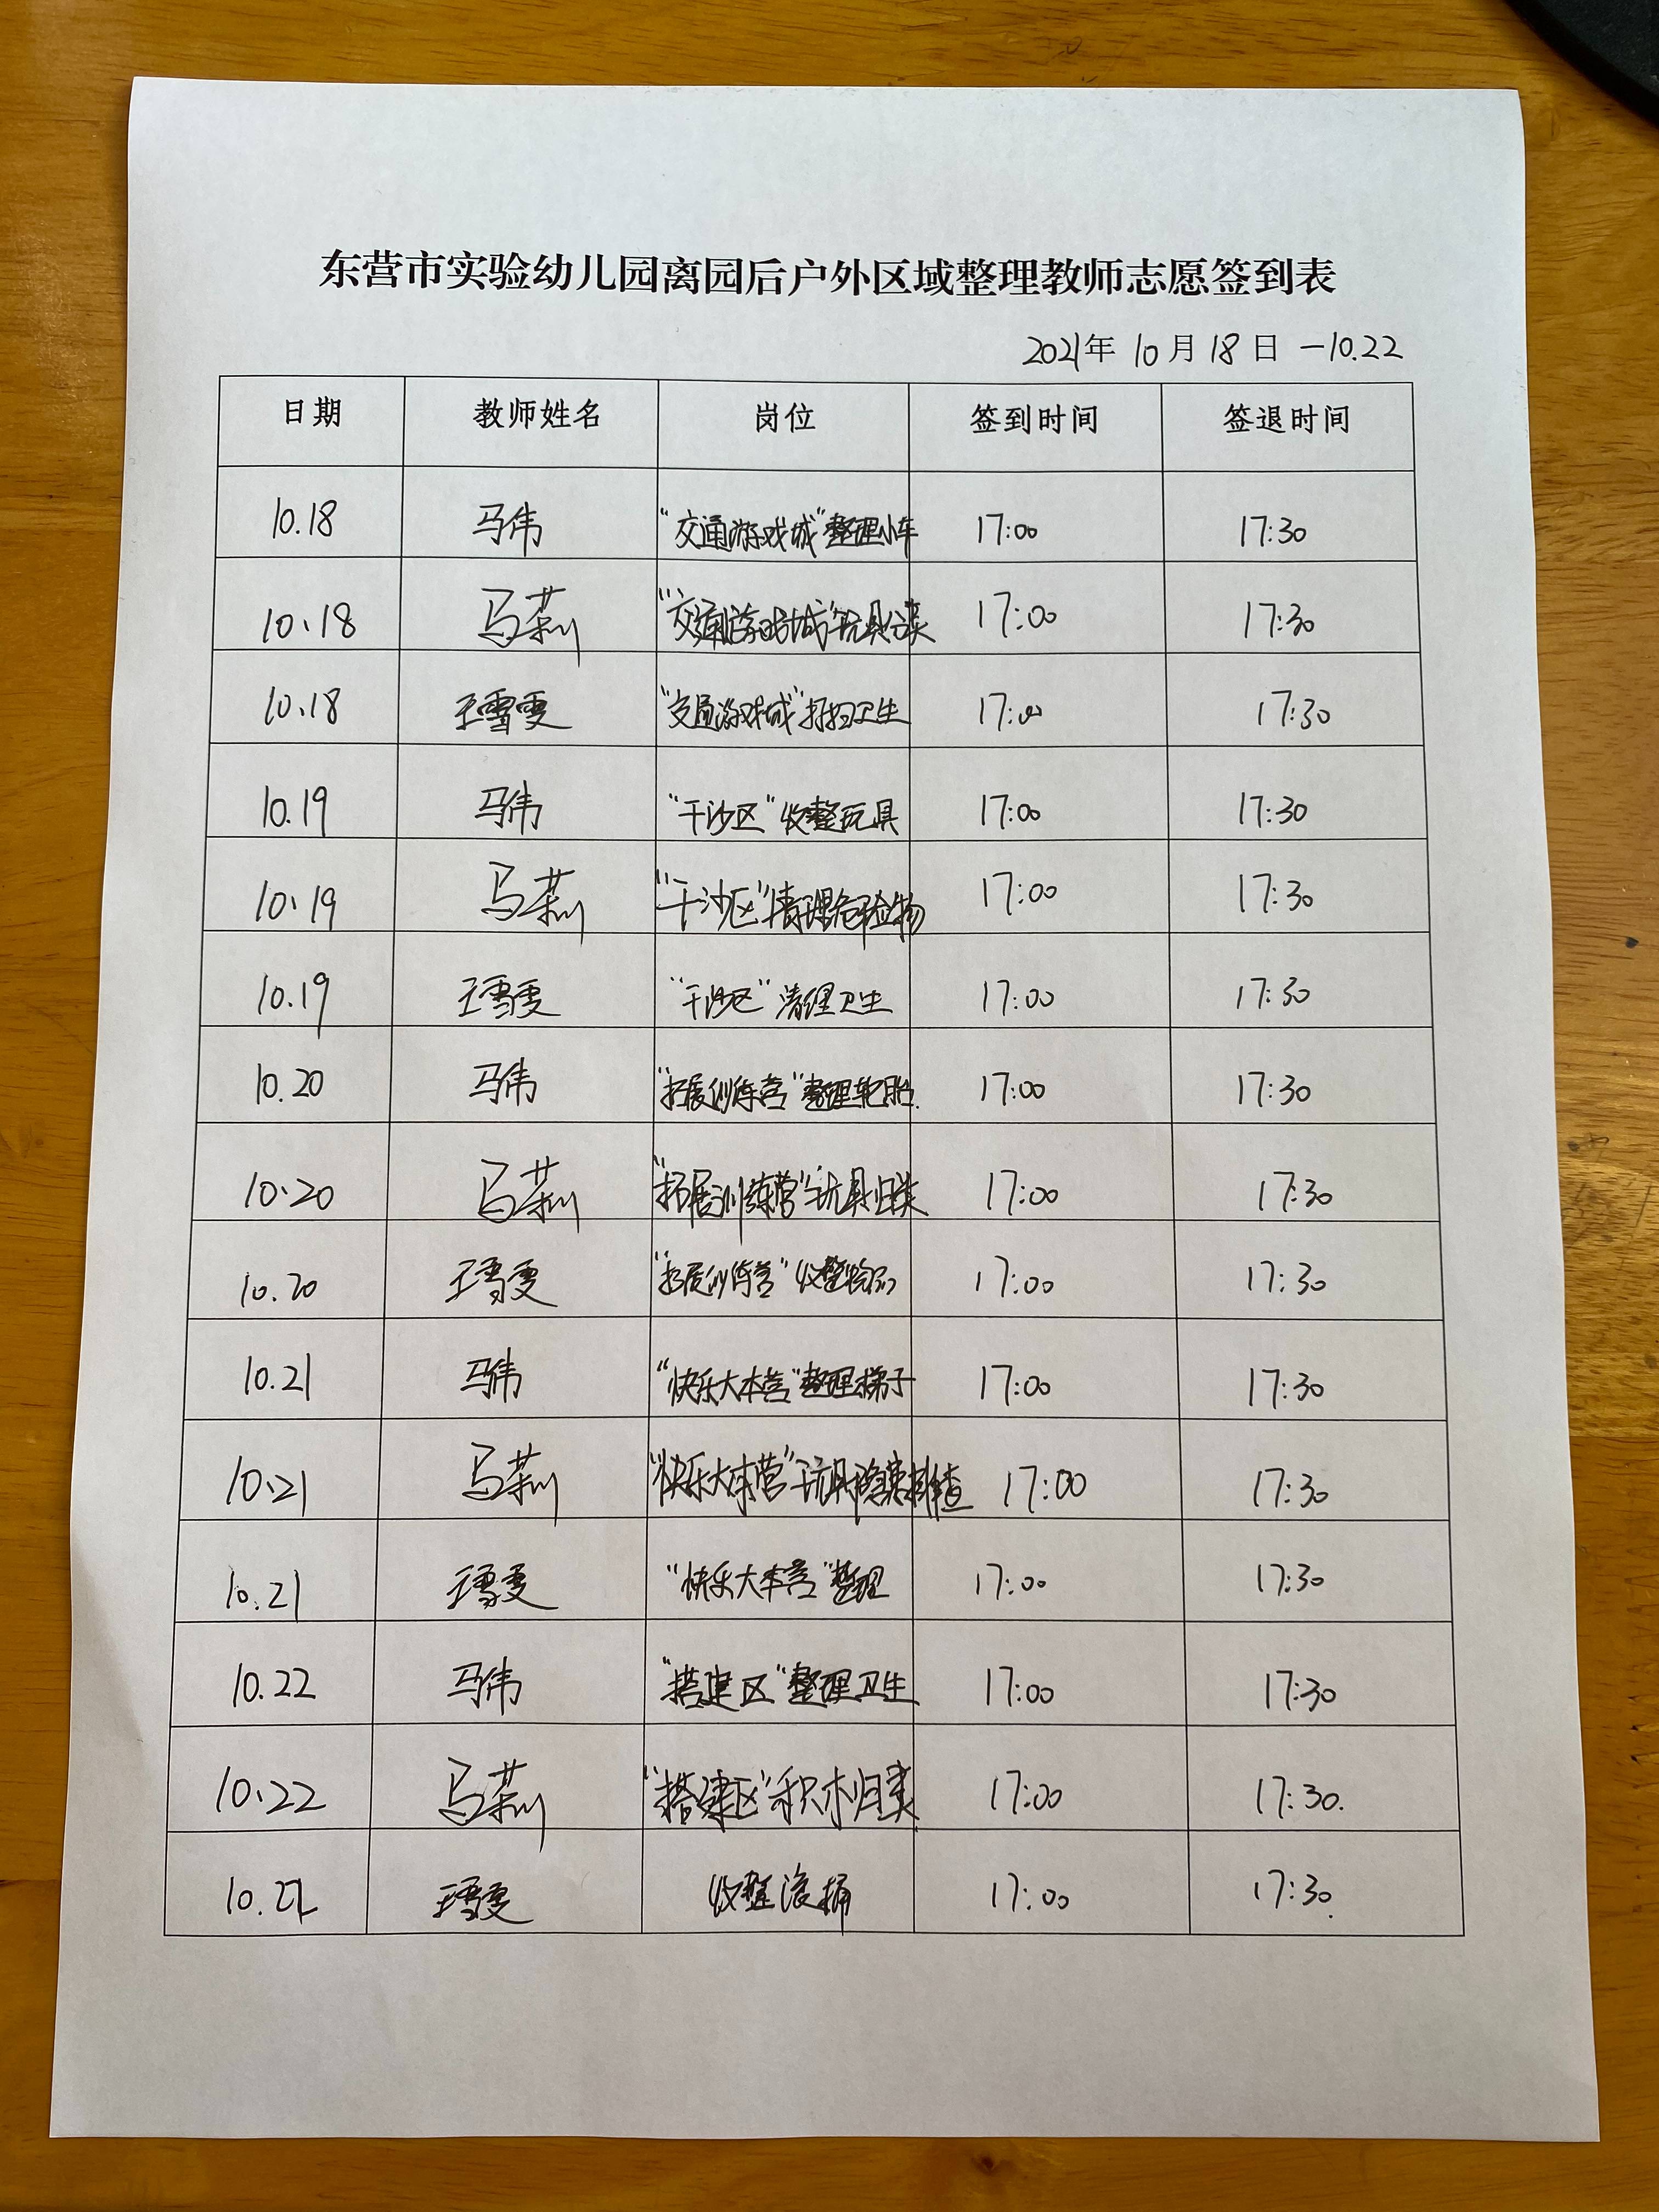 东营市实验幼儿园离园后户外区域整理教师志愿签到表
2021年 10月18日 —10.22
日期 教师姓名 岗位 签到时间 签退时间
10.18 马伟 “交通游戏城”整理小车 17:00 17:30
10.18 马莉 “交通游戏城”玩具分类 17:00 17:30
10.18 王雪雯 “交通游戏城”打扫卫生 17:00 17:30
10.19 马伟 “干沙区”收整玩具 17:00 17:30
10.19 马莉 “干沙区”清理危险物 17:00 17:30
10.19 王雪雯 “干沙区”清理卫生 17:00 17:30
10.20 马伟 “拓展训练营”整理轮胎. 17:00 17:30
10.20 马莉 “拓展训练营”玩具归类 17:00 17:30
10.20 王雪雯 “拓展训练营”收整 17:00 17:30
10.21 马伟 “快乐大本营”整理梯子 17:00 17:30
10.21 马莉 “快乐大本营”玩具隐患排查 17:00 17:30
10.21 王雪雯 “快乐大本营”整理 17:00 17:30
10.22 马伟 “搭建区”整理卫生 17:00 17:30
10.22 马莉 “搭建区”积木归类 17:00 17:30.
10.22 王雪雯 收整滚桶 17:00 17:30.